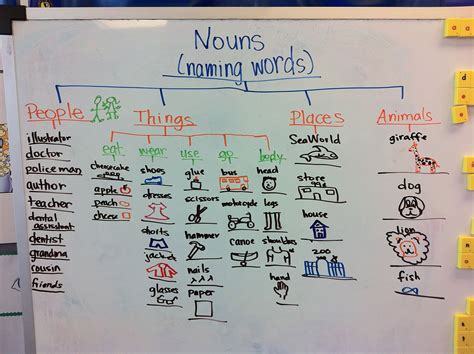 Nouns
(naming words)
People
illustrator
doctor
policeman
author
teacher
dental
assistant
dentist
grandma
cousin
friends
Things
eat
cheesecake
apple
peach
cheese
wear
shoes
dresses
shorts
jacket
glasses
use
glue
scissors
hammer
nails
paper
go
bus
motorcycle
canoe
body
head
legs
shoulders
hand
Places
SeaWorld
store
house
zoo
Animals
giraffe
dog
lion
fish